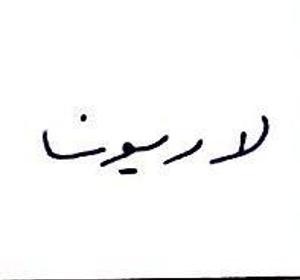 لا ريونا